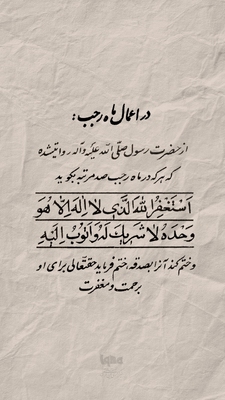 در اعمال ماه رجب:
از حضرت رسول صلّی الله علیه وآله روایتشده
که هرکه در ماه رجب صد مرتبه بگوید
اَسْتَغْفِرُ اللهَ الَّذي لا اِلهَ اِلاّ هُوَ
وَحْدَهُ لا شَريكَ لَهُ وَ اَتُوبُ اِلَيْهِ
وختم کند آنرا بصدقه، ختم فرماید حقتعالی برای او
برحمت و مغفرت